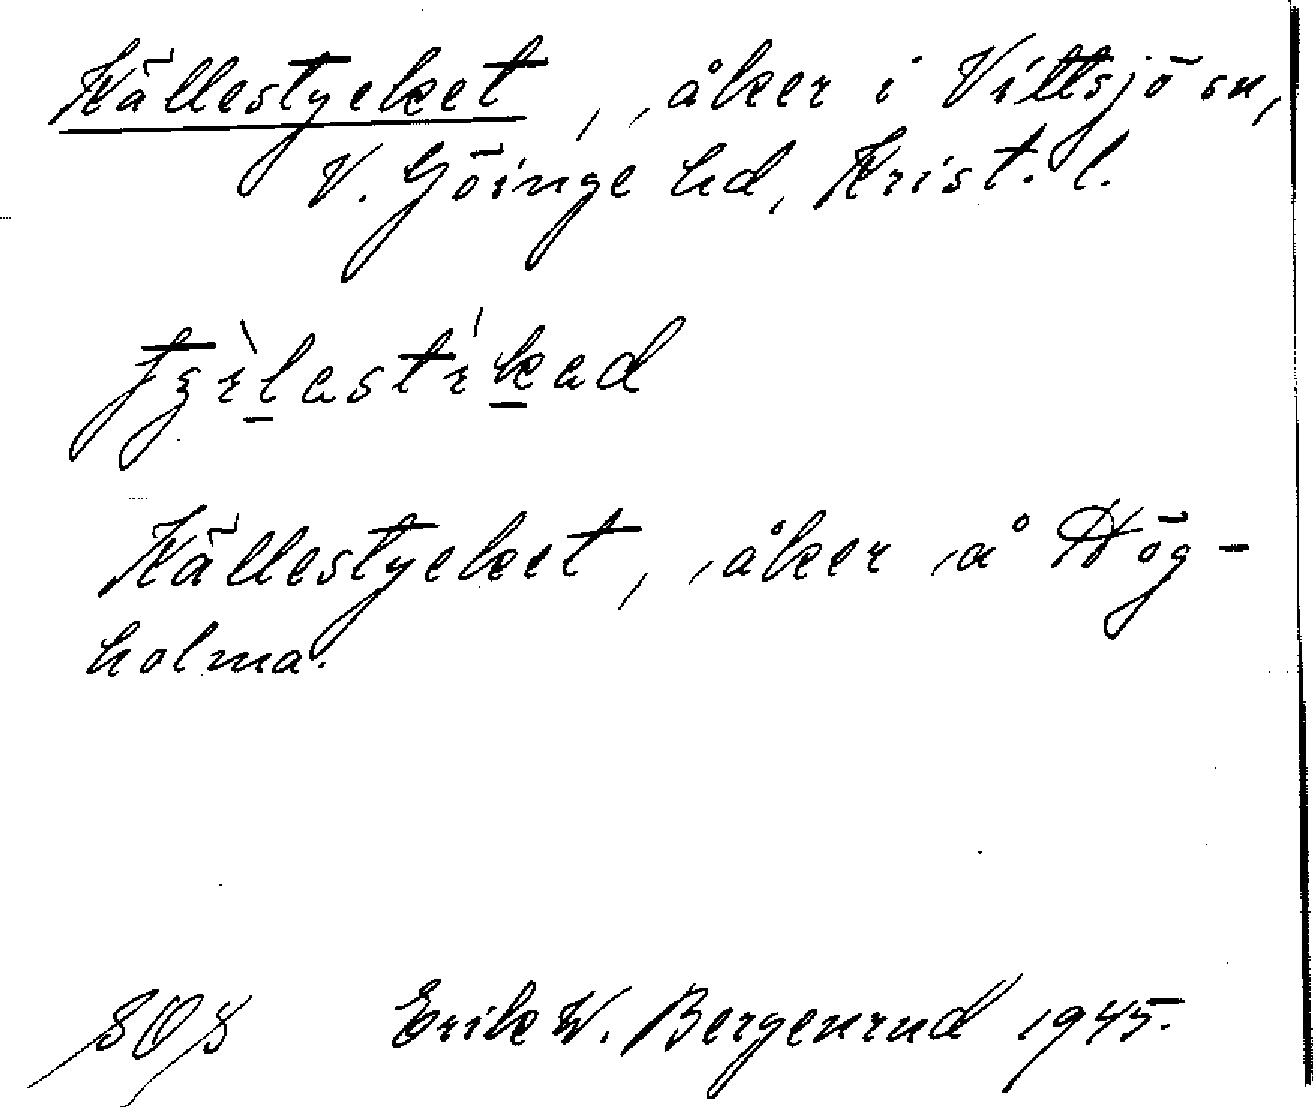 Källestycket, åker i Vittsjö sn,
V. Göinge hd, Krist. l.
Källestycket, åker å Hög-
holma.
Erik W. Bergenrud 1945.